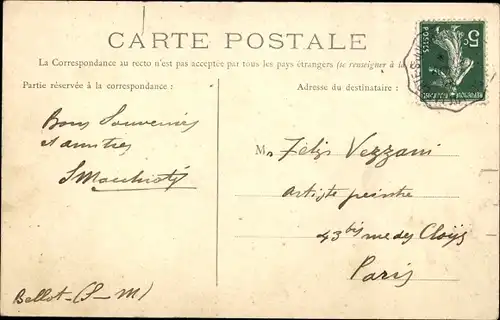 CARTE POSTALE
La Correspondance au recto n'est pas acceptée par tous les pays étrangers (se renseigner à la
Partie réservée à la correspondance :
Adresse du destinataire :
5c
POSTES
Bons Souvenirs
et amitiés
Mr Félix Vezzani
Artiste peintre
43 bis rue des Cloÿs
Paris
Ballot-(S-M)